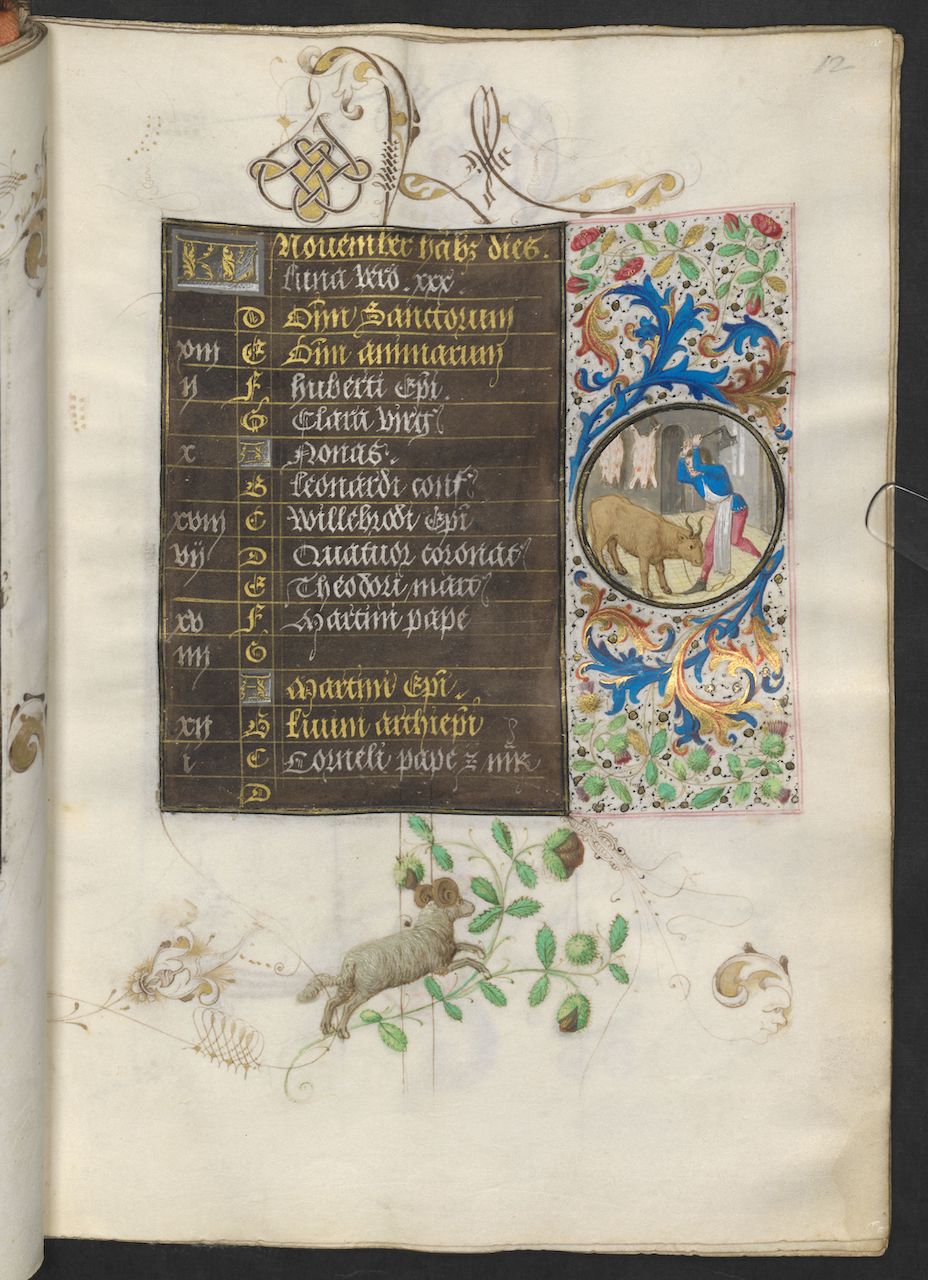 12
KL
KL November habz dies.
Luna vero .xxx.
D Om̄i Sanctorum
xiij E Om̄i animarum
ij F Huberti ep̄i.
G Clara virg
x A Nonas.
B Leonardi conf
xviij C Willebrodi ep̄i
vij D Quatuor coronat
E Theodori mart
xv F Martini pape
iiij G
A Martini Ep̄i.
xij B Liuini archiep̄i
i C Corneli pape z
D